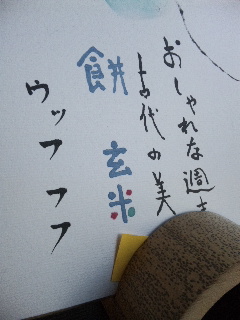 おしゃれな週末
古代の美
餅 玄米
ウッフフフ